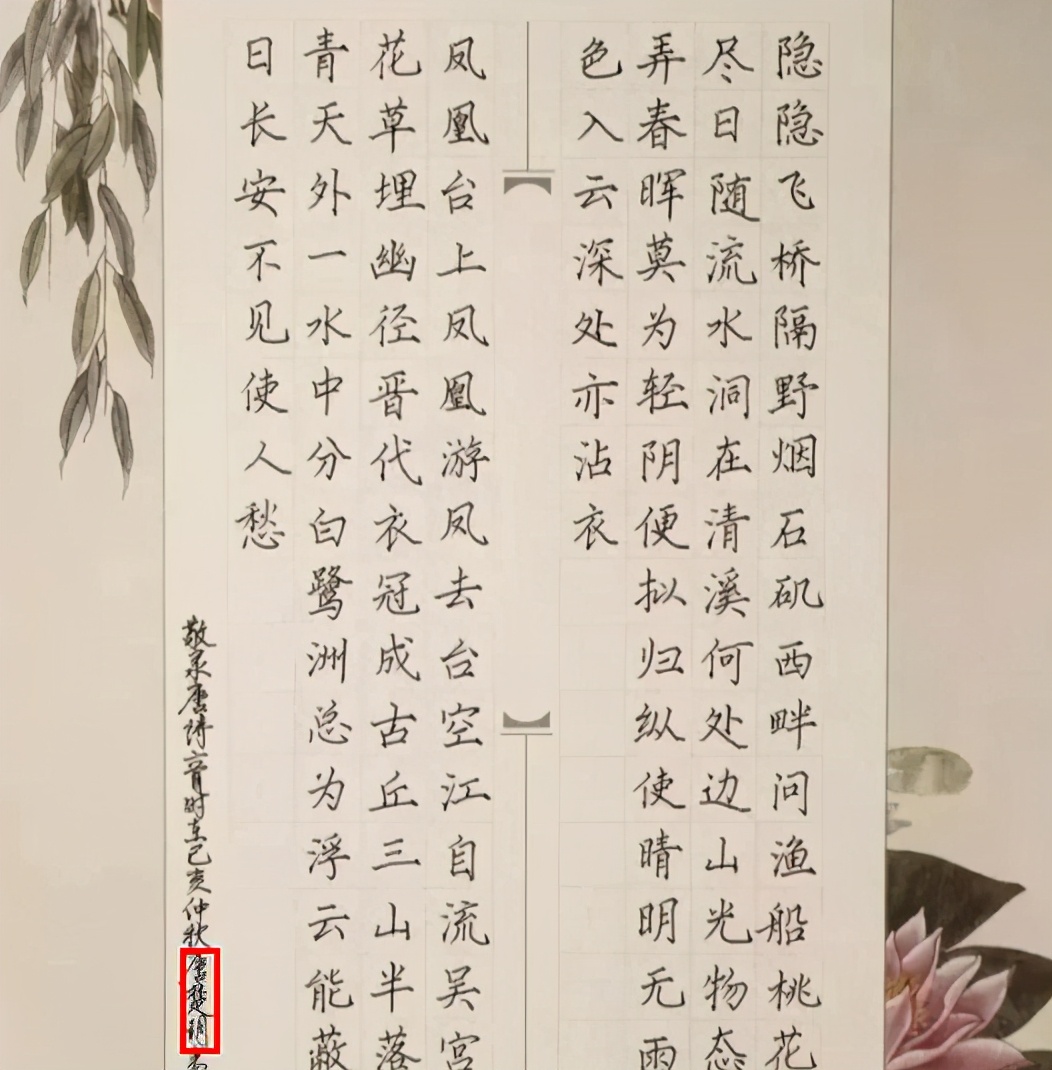 隐隐飞桥隔野烟石矶西畔问渔船桃花
尽日随流水洞在清溪何处边山光物态
弄春晖莫为轻阴便拟归纵使晴明无雨
色入云深处亦沾衣
凤凰台上凤凰游凤去台空江自流吴宫
花草埋幽径晋代衣冠成古丘三山半落
青天外一水中分白鹭洲总为浮云能蔽
日长安不见使人愁
敬录唐诗二首时在己亥仲秋唐楚玥